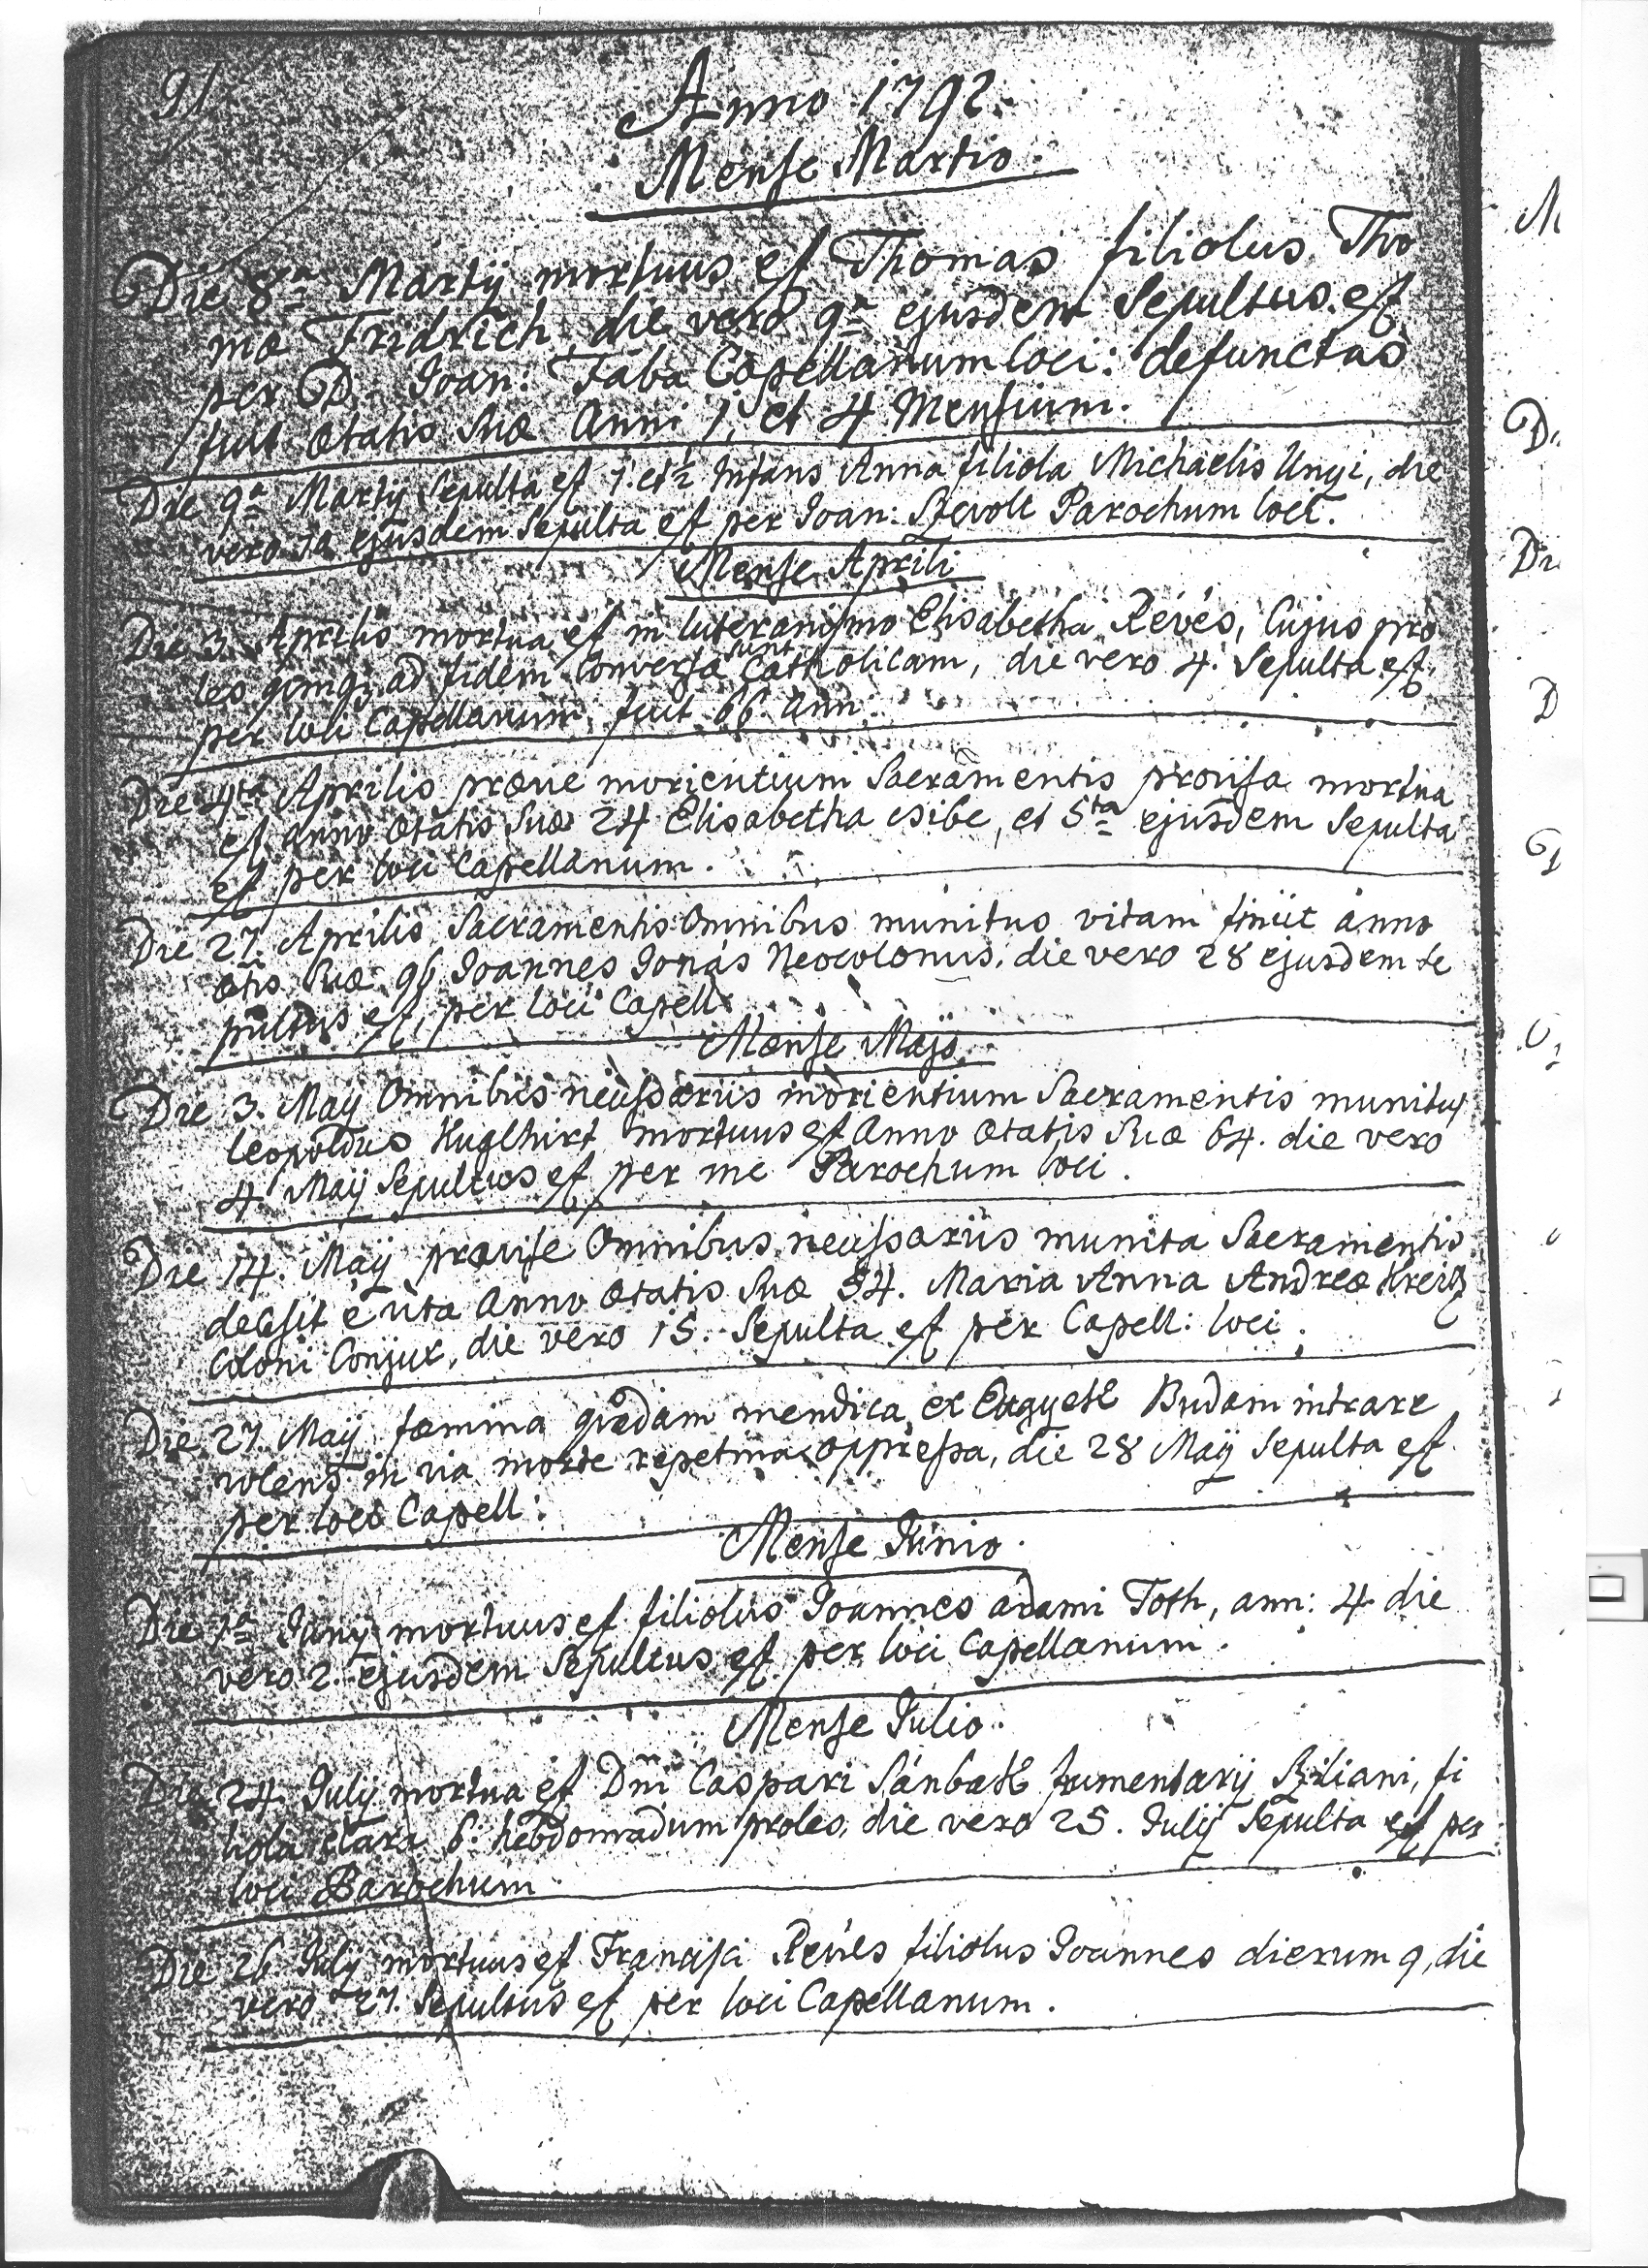 91
Anno 1792.
Mense Martio.
Die 8a Martij mortuus est Thomas filiolus Tho
mæ Fridrich, die vero 9a ejusdem Sepultus est
per D. Joan: Faba Capellanum loci: defunctus
fuit ætatis suæ Anni 1, et 4 Mensium.
Die 9a Martij Sepulta est 1 et ½ Infans Anna filiola Michaelis Ungi, die
vero 10 ejusdem Sepulta est per Joan: Parochum loci.
Mense Aprili
Die 3. Aprilis mortua est in luteranismo Elisabetha Révés, Cujus pro
les ad fidem Conversæ sunt Catholicam, die vero 4. Sepulta est
per loci Capellanum, fuit 66 Ann.
Die 4ta Aprilis præve morientium Sacramentis provisa mortua
est anno ætatis suæ 24 Elisabetha et 5ta ejusdem Sepulta
est per loci Capellanum.
Die 27. Aprilis Sacramentis Omnibus munitus vitam finiit anno
ætis suæ 96 Joannes Jonás Neocolonus, die vero 28 ejusdem se
pultus est, per loci Capell:
Mense Majo.
Die 3. Maij Omnibus necessariis morientium Sacramentis munitus
Leopoldus Huglhirt mortuus est Anno ætatis suæ 64. die vero
4. Maij Sepultus est per me Parochum loci.
Die 14. Maij prævise Omnibus necessariis munita Sacramentis
decessit è vita Anno ætatis suæ 34. Maria Anna Andreæ Kreitz
Coloni Conjux, die vero 15. Sepulta est per Capell: loci.
Die 27. Maij fæmina quædam mendica, ex Budam intrare
volens in via morte repetina oppressa, die 28 Maij Sepulta est
per loci Capell:
Mense Junio.
Die 1a Junij mortuus est filiolus Joannes adami Toth, ann: 4. die
vero 2. ejusdem Sepultus est per loci Capellanum.
Mense Julio.
Die 24. Julij mortua est Dni Caspari frumentarij fi
liola Clara 6. hebdomadum proles, die vero 25. Julij Sepulta est per
loci Parochum
Die 26 Julij mortuus est Francisci Révés filiolus Joannes dierum 9, die
vero 27. Sepultus est per loci Capellanum.